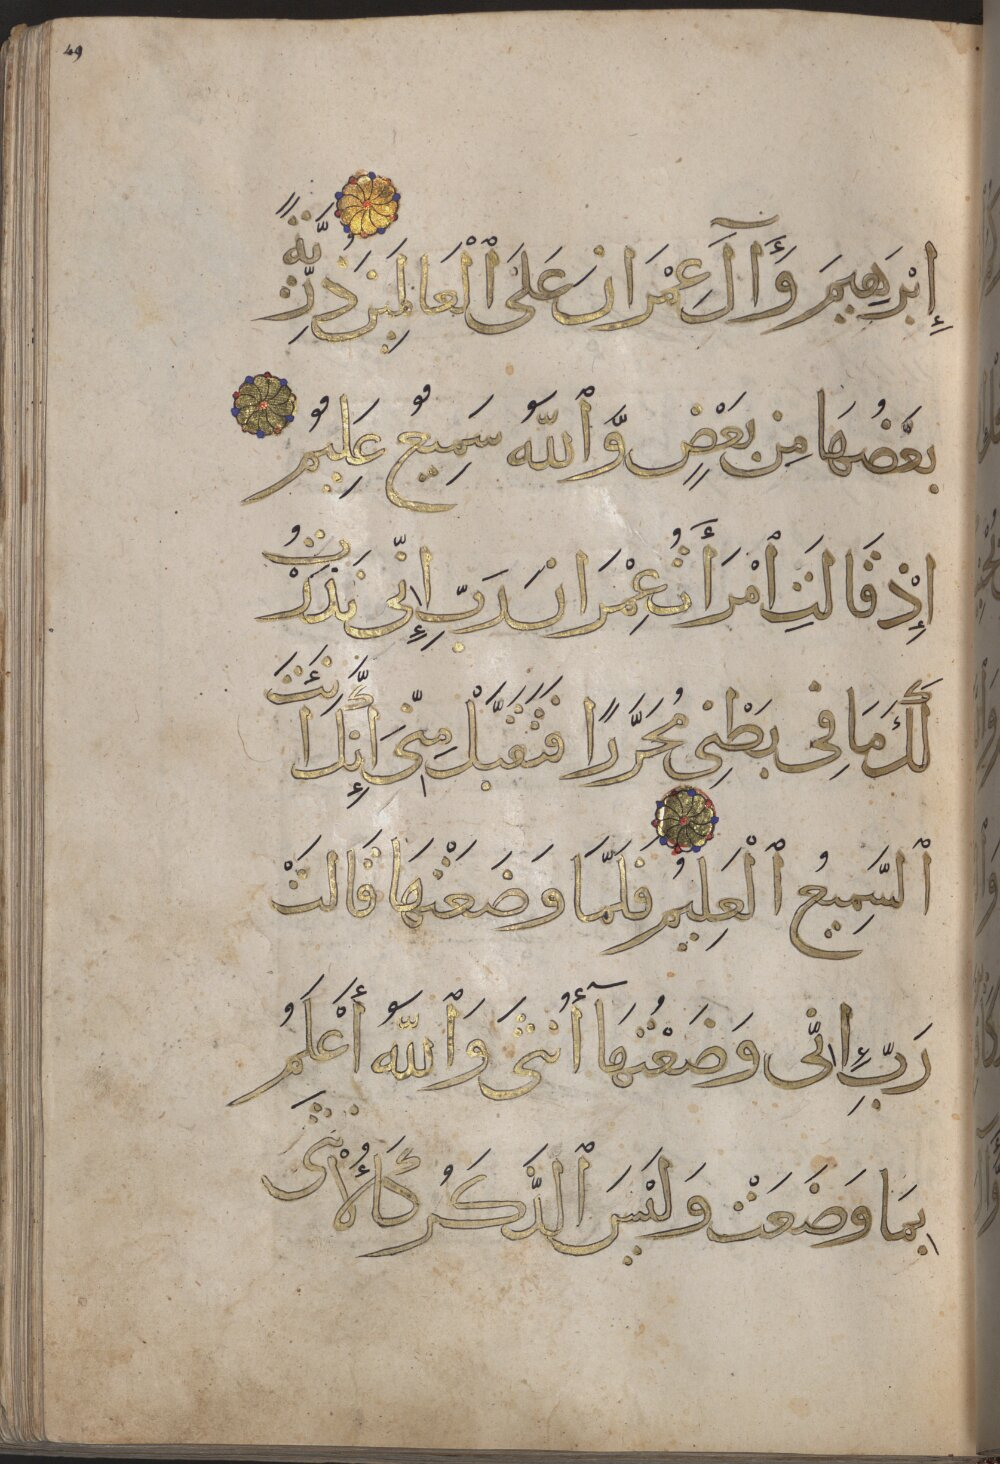 49
إِبْرَهِيمَ وَءَالَ عِمْرَانَ عَلَى ٱلْعَالَمِينَ ذُرِّيَّةً
بَعْضُهَا مِنۢ بَعْضٍ وَّٱللَّهُ سَمِيعٌ عَلِيمٌ
إِذْ قَالَتِ ٱمْرَأَتُ عِمْرَانَ رَبِّ إِنِّى نَذَرْتُ
لَكَ مَا فِى بَطْنِى مُحَرَّرًا فَتَقَبَّلْ مِنِّىٓ إِنَّكَ أَنتَ
ٱلسَّمِيعُ ٱلْعَلِيمُ فَلَمَّا وَضَعَتْهَا قَالَتْ
رَبِّ إِنِّى وَضَعْتُهَآ أُنثَىٰ وَٱللَّهُ أَعْلَمُ
بِمَا وَضَعَتْ وَلَيْسَ ٱلذَّكَرُ كَٱلْأُنثَىٰ